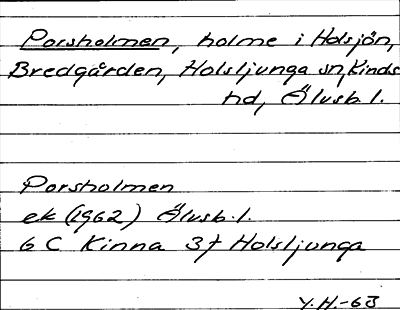 Porsholmen, holme i Holsjön,
Bredgården, Holsljunga sn, Kinds
hd, Älvsb. l.
Porsholmen
ek (1962) Älvsb. l.
6 C Kinna 3f Holsljunga
Y.H.-63